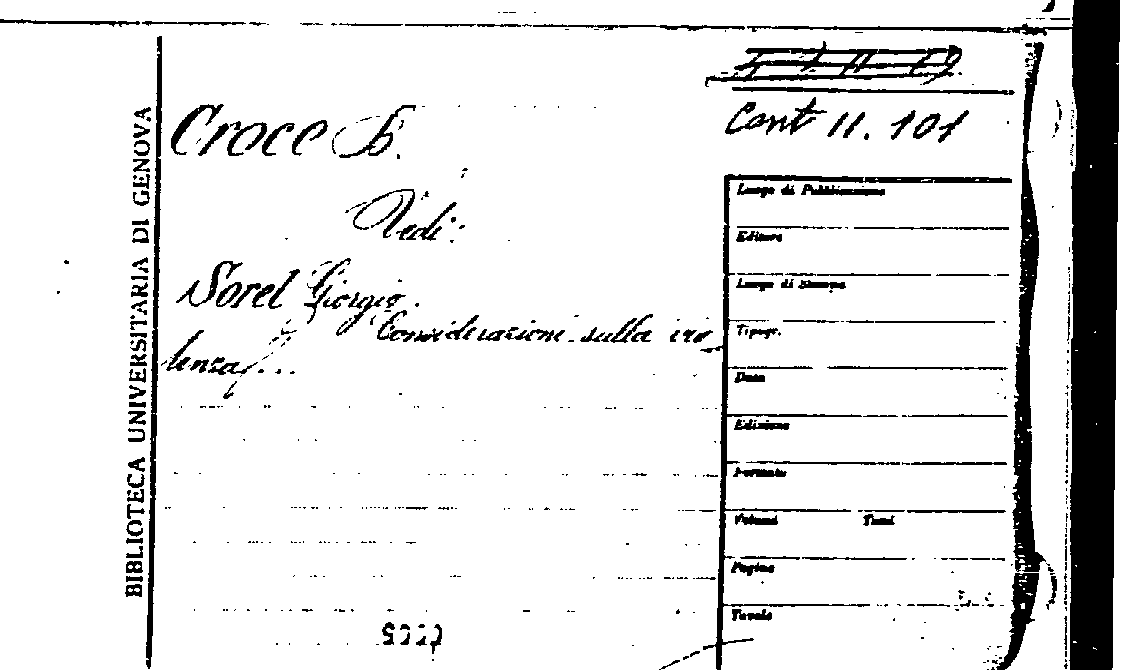 Cont 11. 101
Croce B.
Vedi:
Sorel Giorgio.
Considerazioni sulla vio
lenza...
BIBLIOTECA UNIVERSITARIA DI GENOVA
Luogo di Pubblicazione
Editore
Luogo di Stampa
Tipogr.
Data
Edizione
Formato
Volumi Tomi
Pagine
Tavole